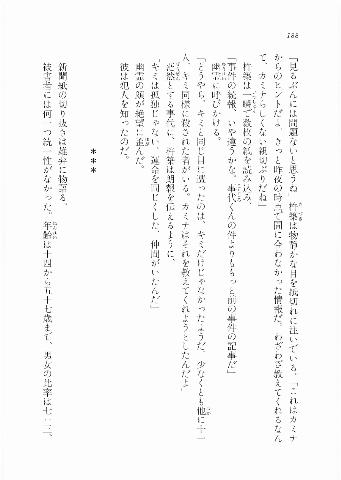 188
「見るぶんには問題ないと思うね」杵築は物静かな目を紙切れに注いでいる。「これはカミナ
からのヒントだよ。きっと昨夜の時点で間に合わなかった情報だ。わざわざ教えてくれるなん
て、カミナらしくない親切ぶりだね」
杵築は一瞬で数枚の紙を読み込み、
「事件の続報、いや違うかな。事代くんの件よりももっと前の事件の記事だ」
幽霊に呼びかける。
「どうやら、キミと同じ目に遭ったのは、キミだけじゃなかったようだ。少なくとも他に十一
人、キミ同様に殺された者がいる。カミナはそれを教えてくれようとしたんだよ」
茫然とする事代に、杵築は朗報を伝えるように、
「キミは孤独じゃない。運命を同じくした、仲間がいたんだ」
幽霊の顔が絶望に歪んだ。
彼は犯人を知ったのだ。
***
新聞紙の切り抜きは雄弁に物語る。
被害者には何一つ統一性がなかった。年齢は十四から五十七歳まで、男女の比率は七・三、